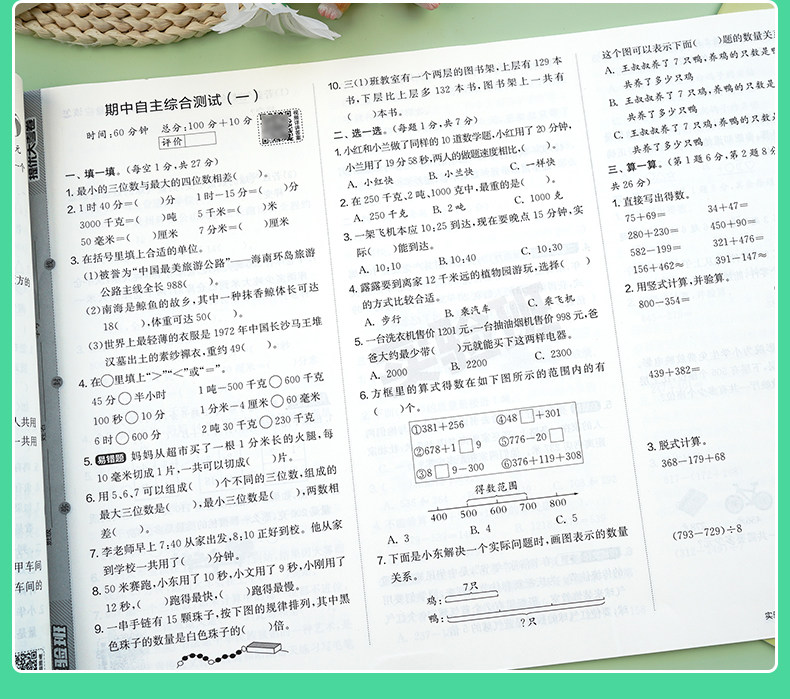 期中自主综合测试(一)
时间:60分钟 总分:100分+10分
评价
一、填一填。(每空1分,共27分)
1.最小的三位数与最大的四位数相差( )。
2.1时40分=( )分 1时-15分=( )分
3000千克=( )吨 5千米=( )米
50毫米=( )厘米 7分米=( )厘米
3.在括号里填上合适的单位。
(1)被誉为“中国最美旅游公路”——海南环岛旅游
公路主线全长988( )。
(2)南海是鲸鱼的故乡,其中一种抹香鲸体长可达
18( ),体重可达50( )。
(3)世界上最轻薄的衣服是1972年中国长沙马王堆
汉墓出土的素纱襌衣,重约49( )。
4.在○里填上“>”“<”或“=”。
45分○半小时 1吨-500千克○600千克
100秒○10分 1分米-4厘米○60毫米
6时○600分 2吨30千克○230千克
5.易错题 妈妈从超市买了一根1分米长的火腿,每
10毫米切成1片,一共可以切成( )片。
6.用5、6、7可以组成( )个不同的三位数,组成的
最大三位数是( ),最小三位数是( ),两数相
差( )。
7.李老师早上7:40从家出发,8:10正好到校。他从家
到学校一共用了( )分钟。
8.50米赛跑,小东用了10秒,小文用了9秒,小刚用了
12秒,( )跑得最快,( )跑得最慢。
9.一串手链有15颗珠子,按下图的规律排列,其中黑
色珠子的数量是白色珠子的( )倍。
10.三(1)班教室有一个两层的图书架,上层有129本
书,下层比上层多132本书,图书架上一共有
( )本书。
二、选一选。(每题1分,共7分)
1.小红和小兰做了同样的10道数学题,小红用了20分钟,
小兰用了19分58秒,两人的做题速度相比,( )。
A.小红快 B.小兰快 C.一样快
2.在250千克、2吨、1000克中,最重的是( )。
A.250千克 B.2吨 C.1000克
3.一架飞机本应10:25到达,现在要晚点15分钟,实
际( )能到达。
A.10:10 B.10:40 C.10:30
4.露露要到离家12千米远的植物园游玩,选择( )
的方式比较合适。
A.步行 B.乘汽车 C.乘飞机
5.一台洗衣机售价1201元,一台抽油烟机售价998元,爸
爸大约最少带( )元就能买下这两样电器。
A.2000 B.2200 C.2300
6.方框里的算式得数在如下图所示的范围内的有
( )个。
①381+256 ④48□+301
②678+1□9 ⑤776-20□
③8□9-300 ⑥376+119+308
得数范围
400 500 600 700 800
A.3 B.4 C.5
7.下面是小东解决一个实际问题时,画图表示的数量
关系。
7只
鸡:
鸭:
?只
这个图可以表示下面( )题的数量关
A.王叔叔养了7只鸭,养鸡的只数是
共养了多少只鸡
B.王叔叔养了7只鸡,养鸭的只数是
共养了多少只鸭
C.王叔叔养了7只鸡,养鸭的只数
共养了多少只鸭
三、算一算。(第1题6分,第2题8分
共26分)
1.直接写出得数。
75+69= 34+47=
280+230= 450+90=
582-199= 321+476=
156+462≈ 391-147≈
2.用竖式计算,并验算。
800-354=
439+382=
3.脱式计算。
368-179+68
(793-729)÷8